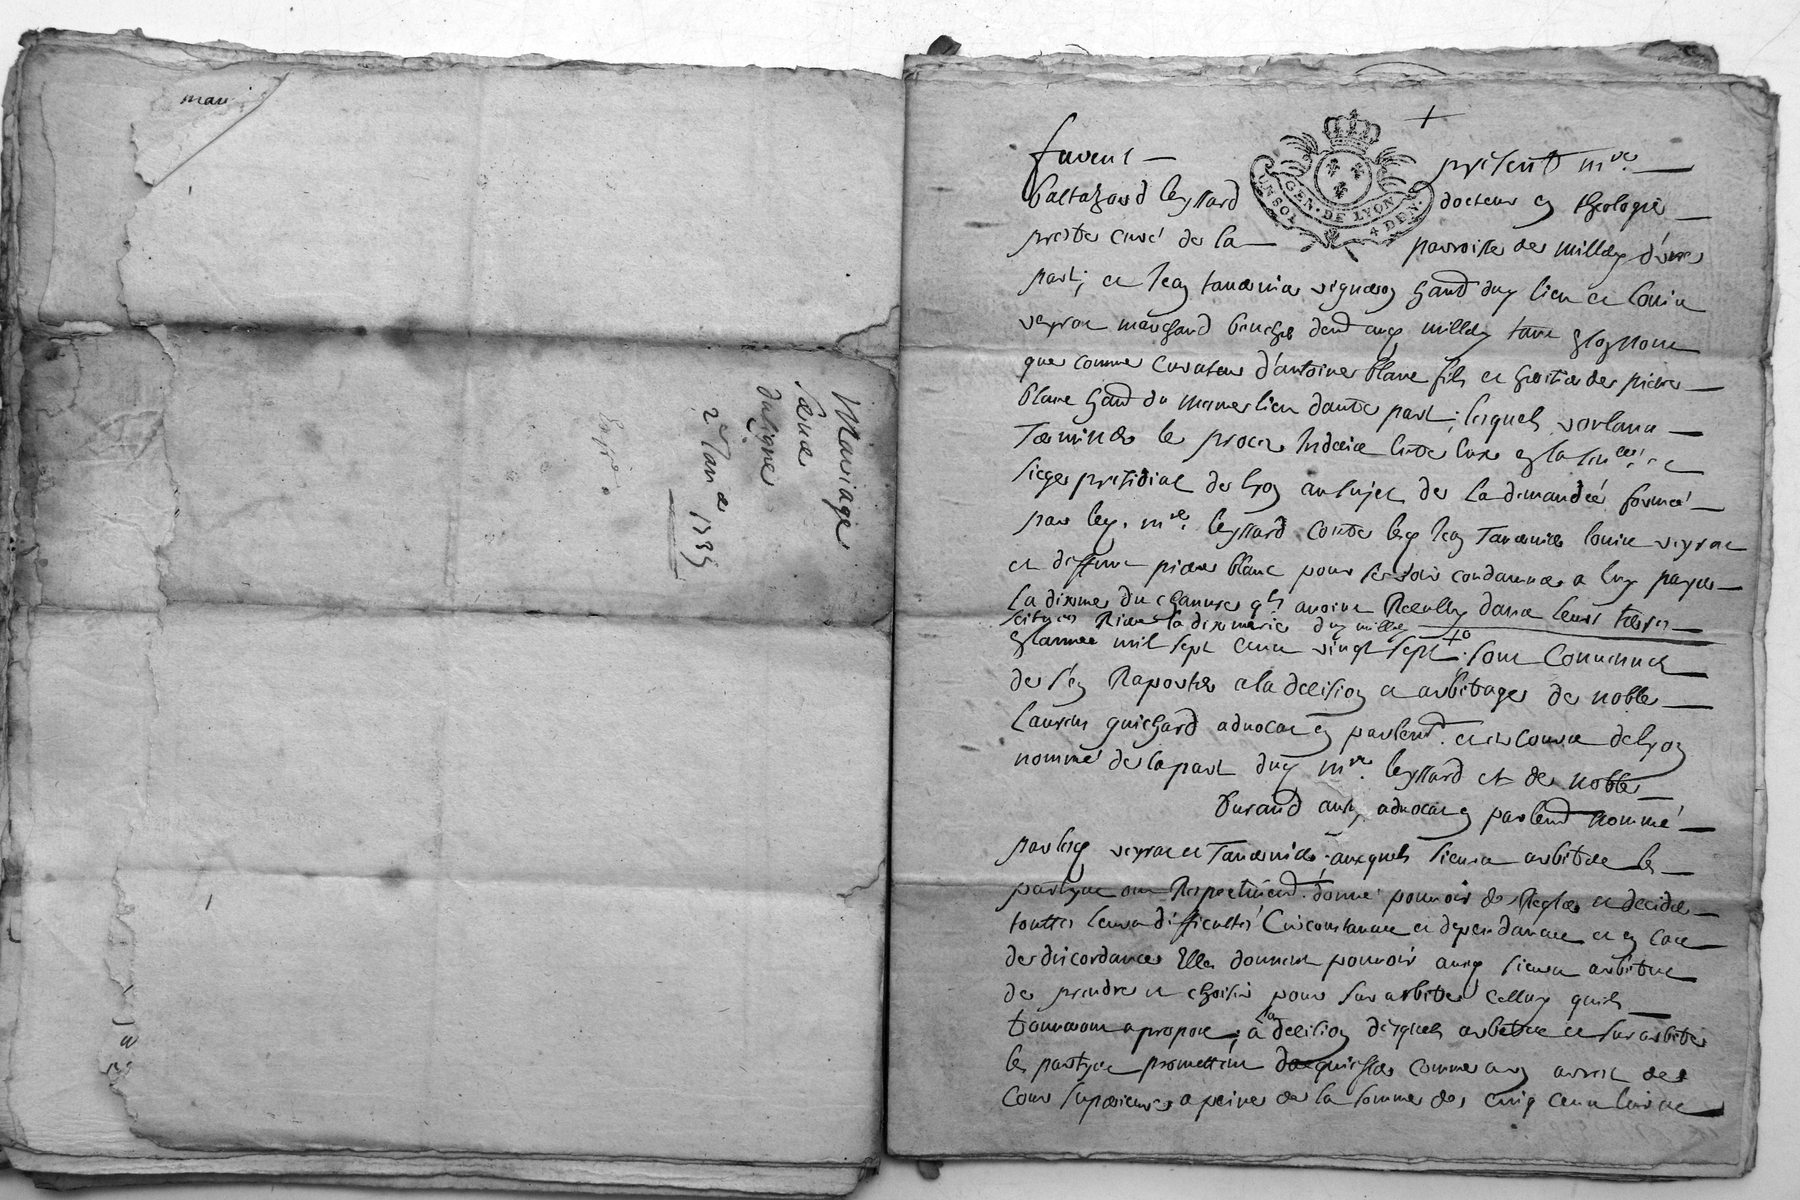 mari
Mariage
duligne
2e Janer 1735
GEN · DE LYON
UN SOL 4 DEN.
furent présent mre
baltazard leyssard docteur en theologie
prestre curé de la parroisse de millery d'une
part, et Jean tavernier vigneron habt duy lieu et louis
veyron marchand boucher aud millery tant en son nom
que comme curateur d'antoine blanc fils et heritier de pierre
blanc habt du mesme lieu d'autre part; lesquels voulant
Terminer le procez Indecis entre eux en la senee et
siege presidial de lyon au sujet de la demande formée
par led. mre leyssard contre led Jean Tavernier louis veyron
et deffunt pierre blanc pour se voir condamner a luy payer
la disme du chanvre qls avoient Recully dans leurs terres
scituées Riere la dixmerie duy millery
en l'année mil sept cent vingt sept; sont convenus
de s'en Raporter a la decision et arbitrage de noble
laurens guichard advocat en parlent et es cours de lyon
nommé de la part duy mre leyssard et de noble
Durand aussy advocat en parlent nommé
par lesd veyron et Tavernier, auxquels sieurs arbitre les
partyes ont Respectivent donné pouvoir de Regler et decider
toutes leurs difficultés Circonstances et dependances et en cas
de discordance Elles donnent pouvoir auxd sieurs arbitres
de prendre et choisir pour surarbitre celluy quils
trouveront a propos; a la decision desquels arbitres et surarbitre
les partyes promettent d'acquiesser comme a un arrest de
Cour superieure a peine de la somme de cinq cent livres